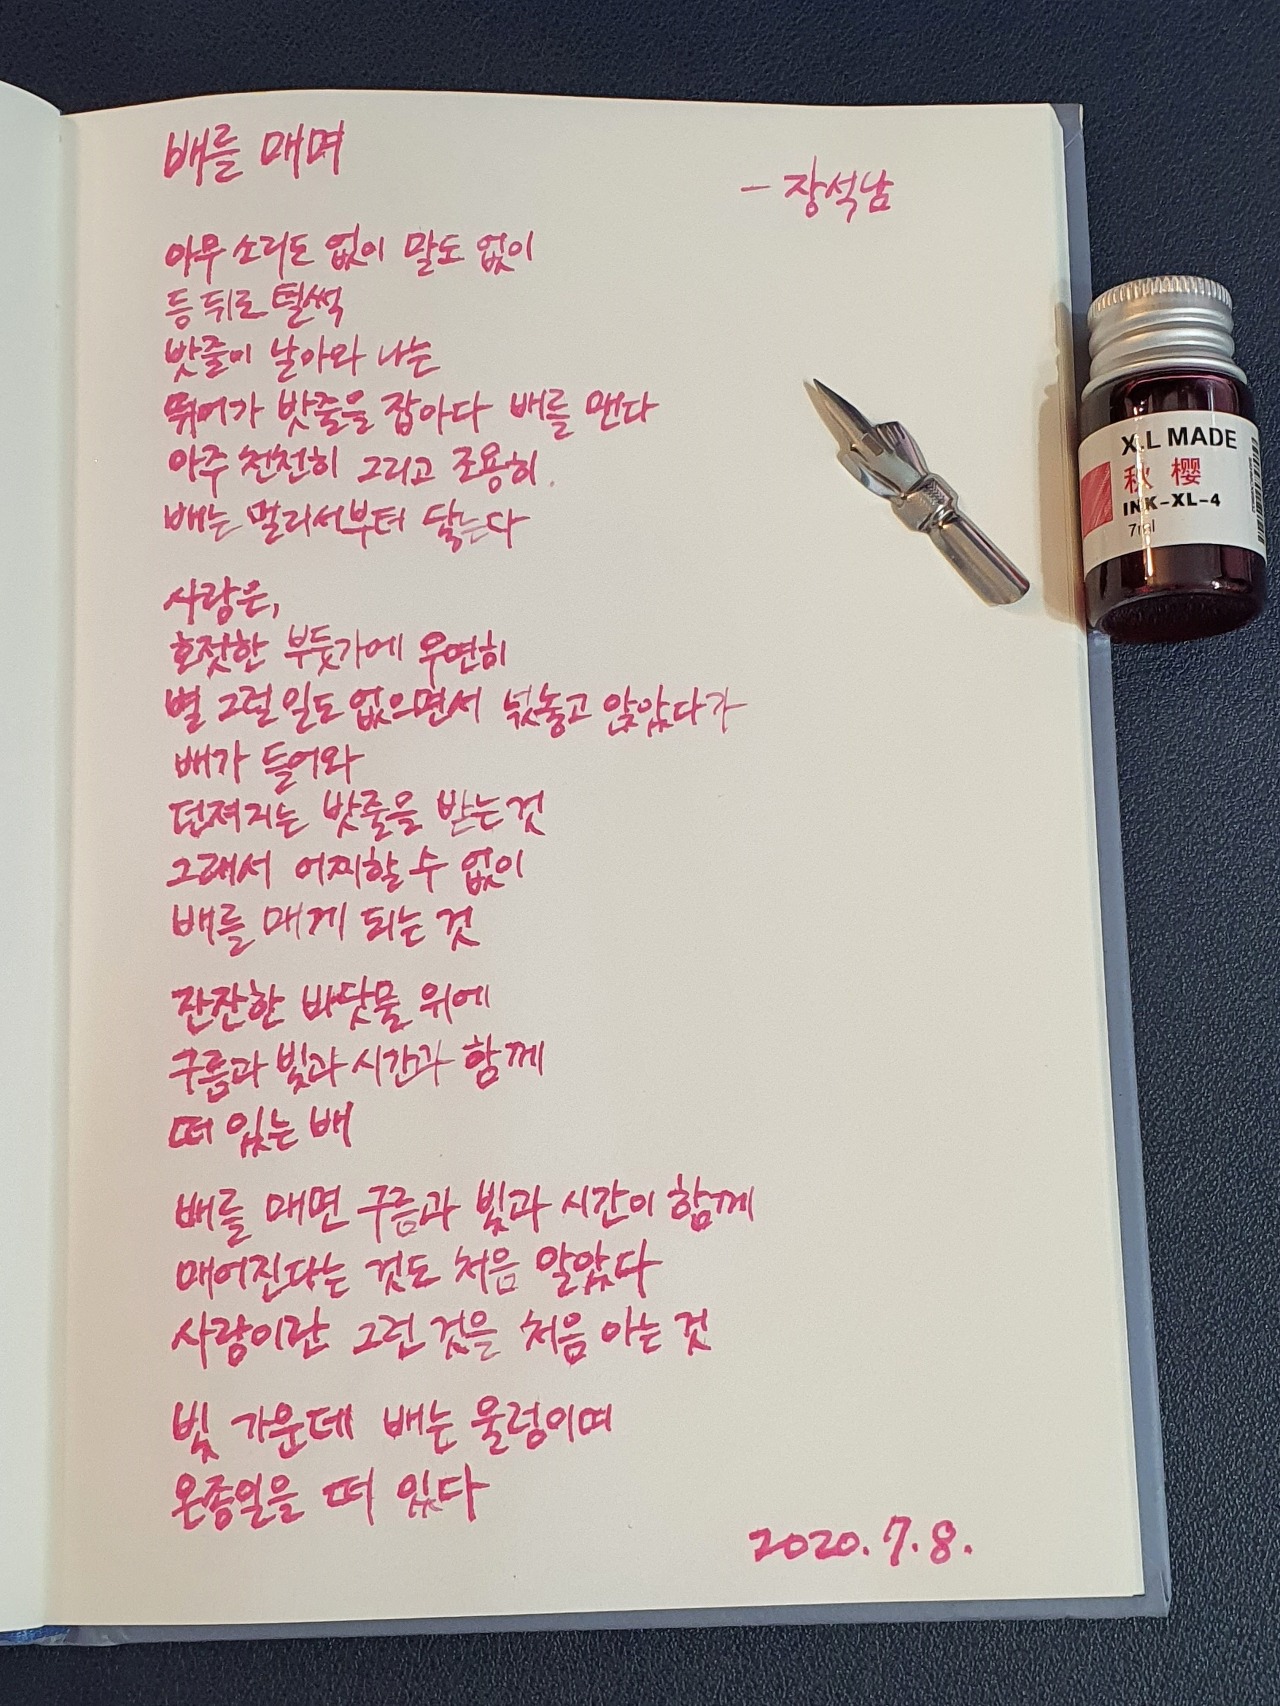 배를 매며
- 장석남
아무 소리도 없이 말도 없이
등 뒤로 털썩
밧줄이 날아와 나는
뛰어가 밧줄을 잡아다 배를 맨다
아주 천천히 그리고 조용히
배는 멀리서부터 닿는다
사랑은,
호젓한 부둣가에 우연히
별 그럴 일도 없으면서 넋놓고 앉았다가
배가 들어와
던져지는 밧줄을 받는 것
그래서 어찌할 수 없이
배를 매게 되는 것
잔잔한 바닷물 위에
구름과 빛과 시간과 함께
떠 있는 배
배를 매면 구름과 빛과 시간이 함께
매어진다는 것도 처음 알았다
사랑이란 그런 것을 처음 아는 것
빛 가운데 배는 울렁이며
온종일을 떠 있다
2020.7.8.
X.L MADE
秋 樱
INK-XL-4
7ml